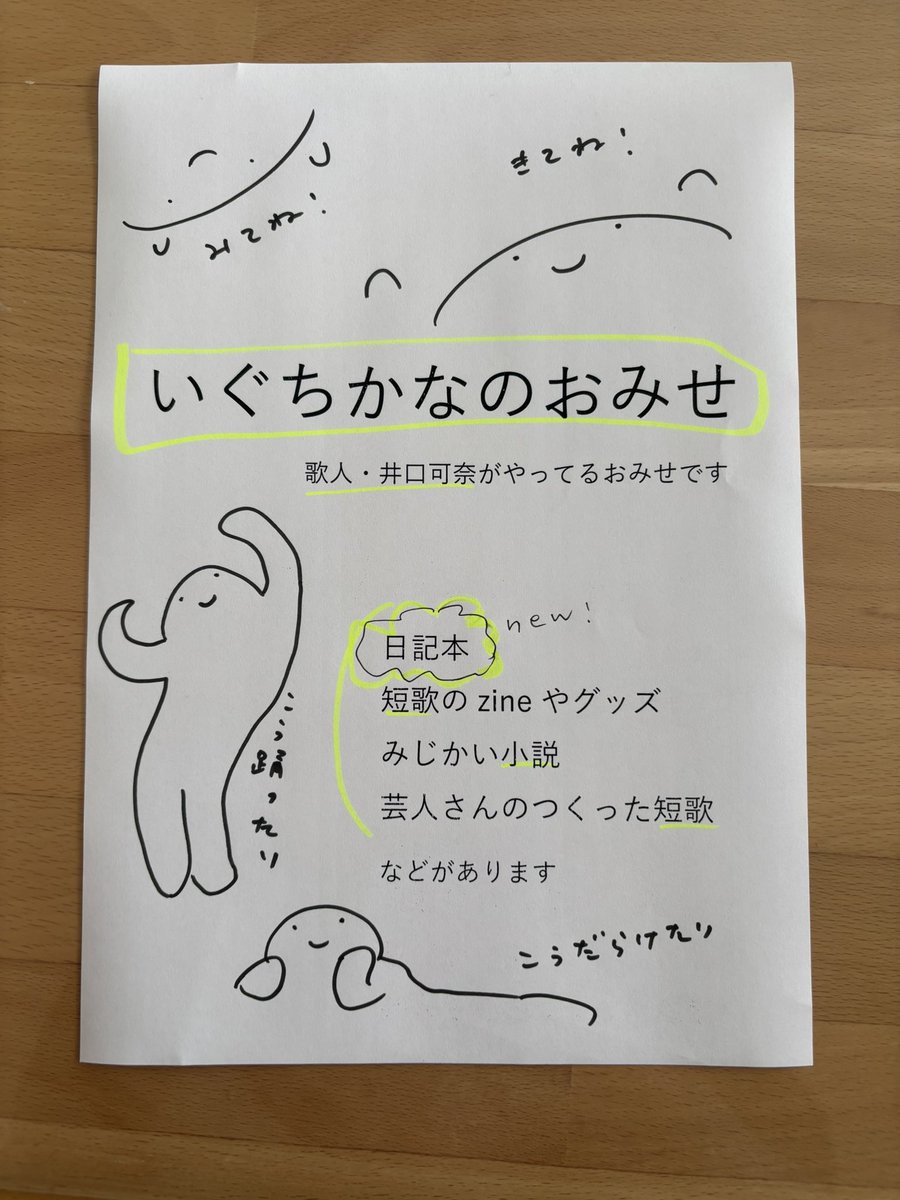 みてね!
きてね!
いぐちかなのおみせ
歌人・井口可奈がやってるおみせです
日記本
new!
短歌の zine やグッズ
みじかい小説
芸人さんのつくった短歌
などがあります
こう踊ったり
こうだらけたり